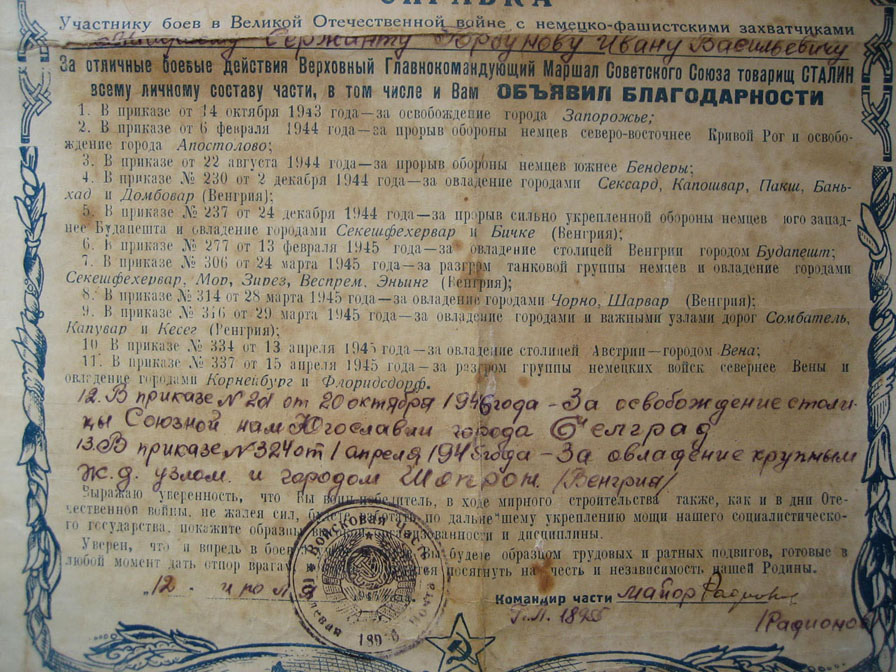 СПРАВКА
Участнику боев в Великой Отечественной войне с немецко-фашистскими захватчиками
Сержанту Горбунову Ивану Васильевичу
За отличные боевые действия Верховный Главнокомандующий Маршал Советского Союза товарищ СТАЛИН
всему личному составу части, в том числе и Вам ОБЪЯВИЛ БЛАГОДАРНОСТИ
1. В приказе от 14 октября 1943 года—за освобождение города Запорожье;
2. В приказе от 6 февраля 1944 года—за прорыв обороны немцев северо-восточнее Кривой Рог и освобо-
ждение города Апостолово;
3. В приказе от 22 августа 1944 года—за прорыв обороны немцев южнее Бендеры;
4. В приказе № 230 от 2 декабря 1944 года—за овладение городами Сексард, Капошвар, Пакш, Бань-
хад и Домбовар (Венгрия);
5. В приказе № 237 от 24 декабря 1944 года—за прорыв сильно укрепленной обороны немцев юго запад-
нее Будапешта и овладение городами Секешфехервар и Бичке (Венгрия);
6. В приказе № 277 от 13 февраля 1945 года—за овладение столицей Венгрии городом Будапешт;
7. В приказе № 306 от 24 марта 1945 года—за разгром танковой группы немцев и овладение городами
Секешфехервар, Мор, Зирез, Веспрем, Эньинг (Венгрия);
8. В приказе № 314 от 28 марта 1945 года—за овладение городами Чорно, Шарвар (Венгрия);
9. В приказе № 316 от 29 марта 1945 года—за овладение городами и важными узлами дорог Сомбатель,
Капувар и Кесег (Венгрия);
10 В приказе № 334 от 13 апреля 1945 года—за овладение столицей Австрии—городом Вена;
11. В приказе № 337 от 15 апреля 1945 года—за разгром группы немецких войск севернее Вены и
овладение городами Корнейбург и Флоридсдорф.
12. В приказе № 201 от 20 октября 1946 года – За освобождение столи-
цы Союзной нам Югославии города Белград
13. В приказе № 324 от 1 апреля 1945 года – За овладение крупным
ж.д. узлом и городом Шопрон /Венгрия/
Выражаю уверенность, что Вы воин-победитель, в ходе мирного строительства также, как и в дни Оте-
чественной войны, не жалея сил, будете по дальнейшему укреплению мощи нашего социалистическо-
го государства, покажите образцы и дисциплины.
Уверен, что и впредь в боев будете образцом трудовых и ратных подвигов, готовые в
любой момент дать отпор врагу посягнуть на честь и независимость нашей Родины.
"12" июля
Войсковая часть
Полевая Почта
Командир части майор
/Радионов/